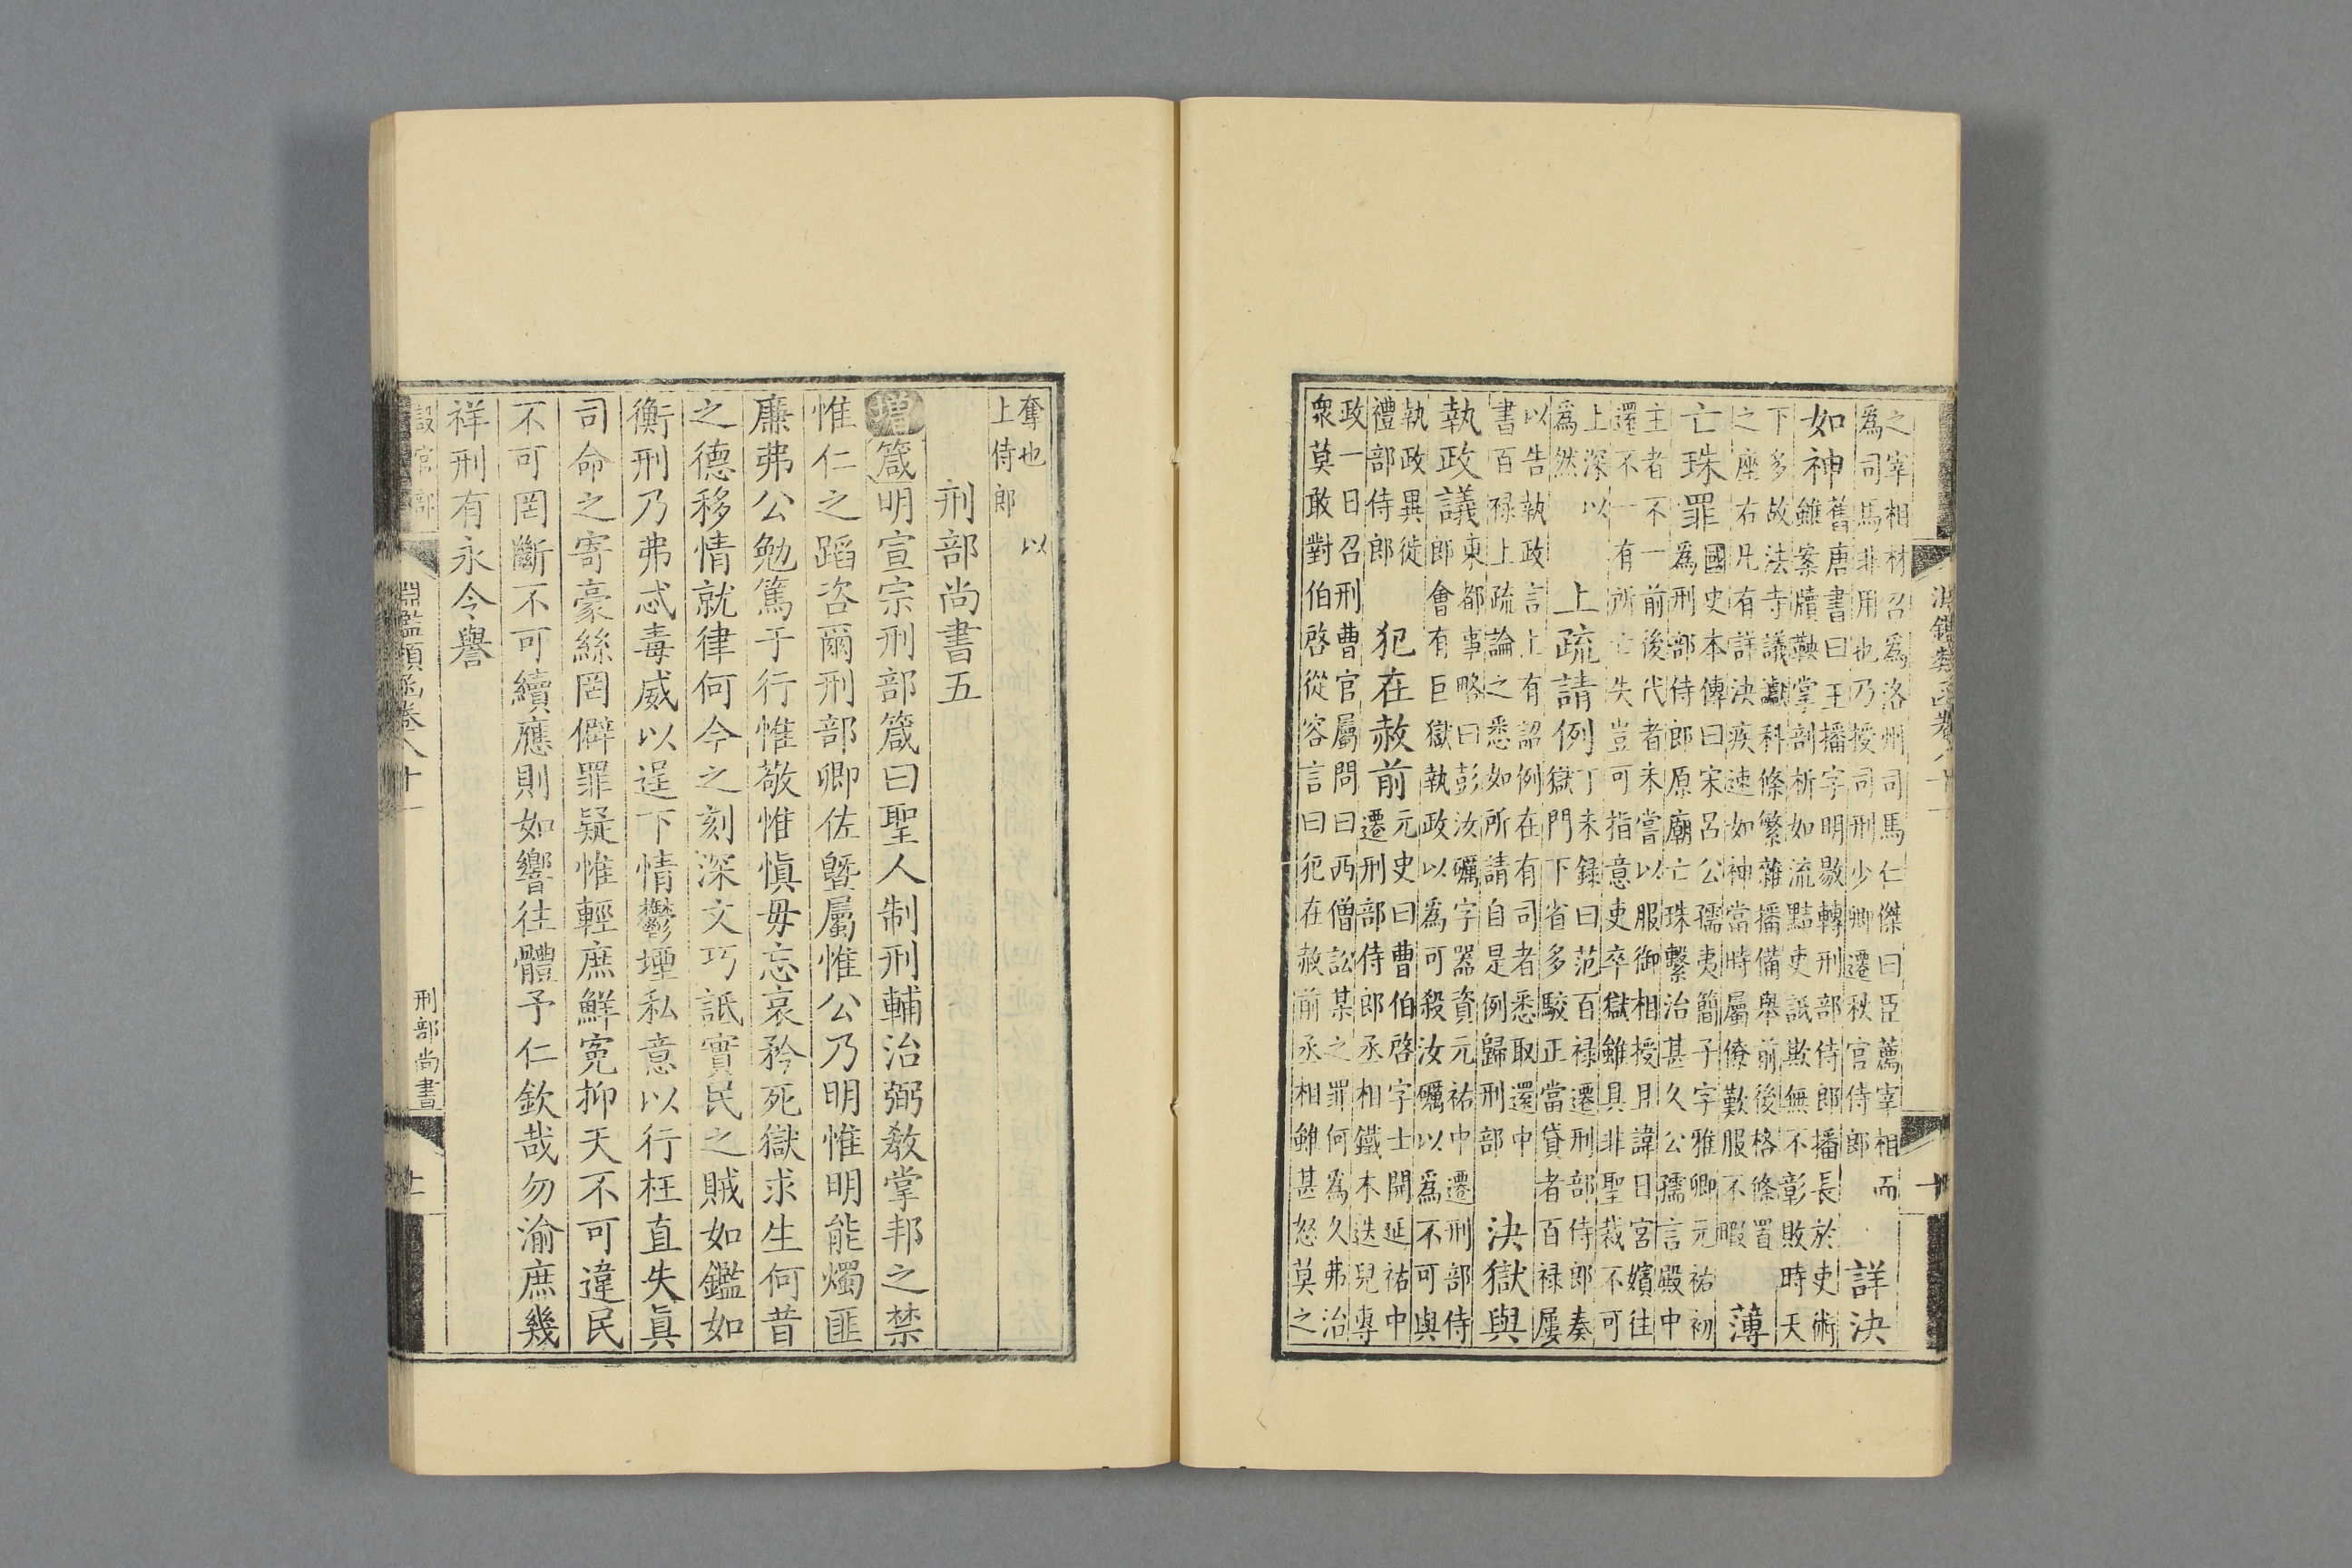 淵鑑類函卷八十一
十
之宰相材召爲洛州司馬仁傑曰臣薦宰相而
爲司馬非用也乃授司刑少卿遷秋官侍郎
詳決
如神
舊唐書曰王播字明敭轉刑部侍郎播長於吏術
雖案牘鞅掌剖析如流黠吏詆欺無不彰敗時天
下多故法寺議讞科條繁雜播備舉前後格條置
之座右凡有詳決疾速如神當時屬僚歎服不暇
薄
亡珠罪
國史本傳曰宋呂公孺夷簡子字雅卿元祐初
爲刑部侍郎原廟亡珠繫治甚久公孺言殿中
主者不一前後代者未嘗以服御相授且諱日宮嬪往
還不一有所亡失豈可指意吏卒獄雖具非聖裁不可
上深以
爲然
上疏請例
丁未録曰范百禄遷刑部侍郎奏
獄門下省多駮正當貸者百禄屢
以告執政言上有詔例在有司者悉取還中
書百禄上疏論之悉如所請自是例歸刑部
決獄與
執政議
東都事略曰彭汝礪字器資元祐中遷刑部侍
郎會有巨獄執政以爲可殺汝礪以爲不可與
執政異徙
禮部侍郎
犯在赦前
元史曰曹伯啓字士開延祐中
遷刑部侍郎丞相鐵木迭兒專
政一日召刑曹官屬問曰西僧訟某之罪何爲久弗治
衆莫敢對伯啓從容言曰犯在赦前丞相雖甚怒莫之
奪也 以
上侍郎
刑部尚書五
增箴明宣宗刑部箴曰聖人制刑輔治弼教掌邦之禁
惟仁之蹈咨爾刑部卿佐曁屬惟公乃明惟明能燭匪
廉弗公勉篤于行惟敬惟愼毋忘哀矜死獄求生何昔
之德移情就律何今之刻深文巧詆實民之賊如鑑如
衡刑乃弗忒毒威以逞下情鬱堙私意以行枉直失眞
司命之寄豪絲罔僻罪疑惟輕庶鮮寃抑天不可違民
不可罔斷不可續應則如響往體予仁欽哉勿渝庶幾
祥刑有永令譽
設官部
淵鑑類函卷八十一
刑部尚書